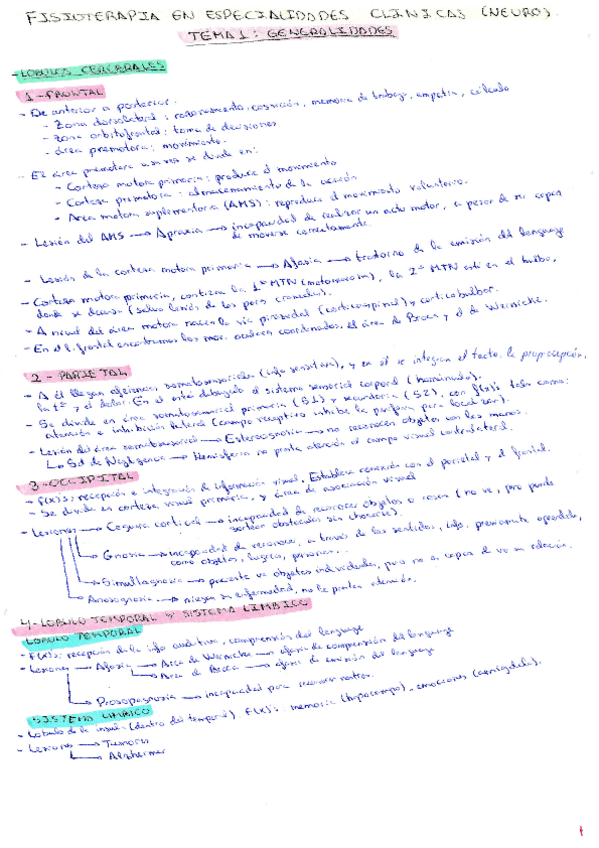 FISIOTERAPIA EN ESPECIALIDADES CLINICAS (NEURO).
TEMA 1: GENERALIDADES
- LOBULOS CEREBRALES
1 - FRONTAL
- De anterior a posterior:
- Zona dorsolateral: razonamiento, cognición, memoria de trabajo, empatía, cálculo
- Zona orbitofrontal: toma de decisiones
- área premotora: movimiento.
- El área premotora se divide en:
- Corteza motora primaria: produce el movimiento
- Corteza premotora: almacenamiento de la acción
- Area motora suplementaria (AMS): reproduce el movimiento voluntario.
- Lesión del AMS → Apraxia → incapacidad de realizar un acto motor, a pesar de ser capaz
de moverse correctamente.
- Lesión de la corteza motora primaria → Afasia → trastorno de la emisión del lenguaje
- Corteza motora primaria, contiene la 1ª MTN (motoneurona), la 2ª MTN está en el bulbo,
donde se decusa (salvo lesión de los pares craneales).
- A nivel del área motora nace la vía piramidal (corticoespinal) y corticobulbar.
- En el l. frontal encontramos los mov. oculares coordinados, el área de Broca y el de Wernicke.
2 - PARIETAL
- A él llegan aferencias somatosensoriales (info sensitiva), y en él se integran el tacto, la propiocepción,
la tª y el dolor. En él está dibujado el sistema sensorial corporal (homúnculo).
- Se divide en área somatosensorial primaria (S1) y secundaria (S2), con f(x)s tales como:
atención e inhibición lateral (campo receptivo inhibe la periferia para localizar).
- Lesión del área somatosensorial → Estereognosia → no reconocen objetos con las manos.
Sd de Negligencia → Hemisferio no presta atención al campo visual contralateral.
3 - OCCIPITAL
- f(x)s: recepción e integración de información visual. Establece conexión con el parietal y el frontal.
- Se divide en corteza visual primaria, y área de asociación visual
- Lesiones → Ceguera cortical → incapacidad de reconocer objetos o cosas (no ve, pero puede
sortear obstáculos sin chocarse).
→ Gnosia → incapacidad de reconocer, a través de los sentidos, info. previamente aprendida,
como objetos, lugares, personas...
→ Simultagnosia → presente ve objetos individuales, pero no es capaz de ver su relación.
→ Anosognosia → niegan su enfermedad, no le prestan atención.
4 - LOBULO TEMPORAL Y SISTEMA LIMBICO
LOBULO TEMPORAL
- F(x)s: recepción de la info auditiva, comprensión del lenguaje
- Lesiones → Afasia → Area de Wernicke → afasia de comprensión del lenguaje
→ Area de Broca → afasia de emisión del lenguaje
→ Prosopagnosia → incapacidad para reconocer rostros.
SISTEMA LIMBICO
- Lobulo de la insula (dentro del temporal). F(x)s: memoria (hipocampo), emociones (amígdala).
- Lesiones → Tumores
→ Alzheimer
1